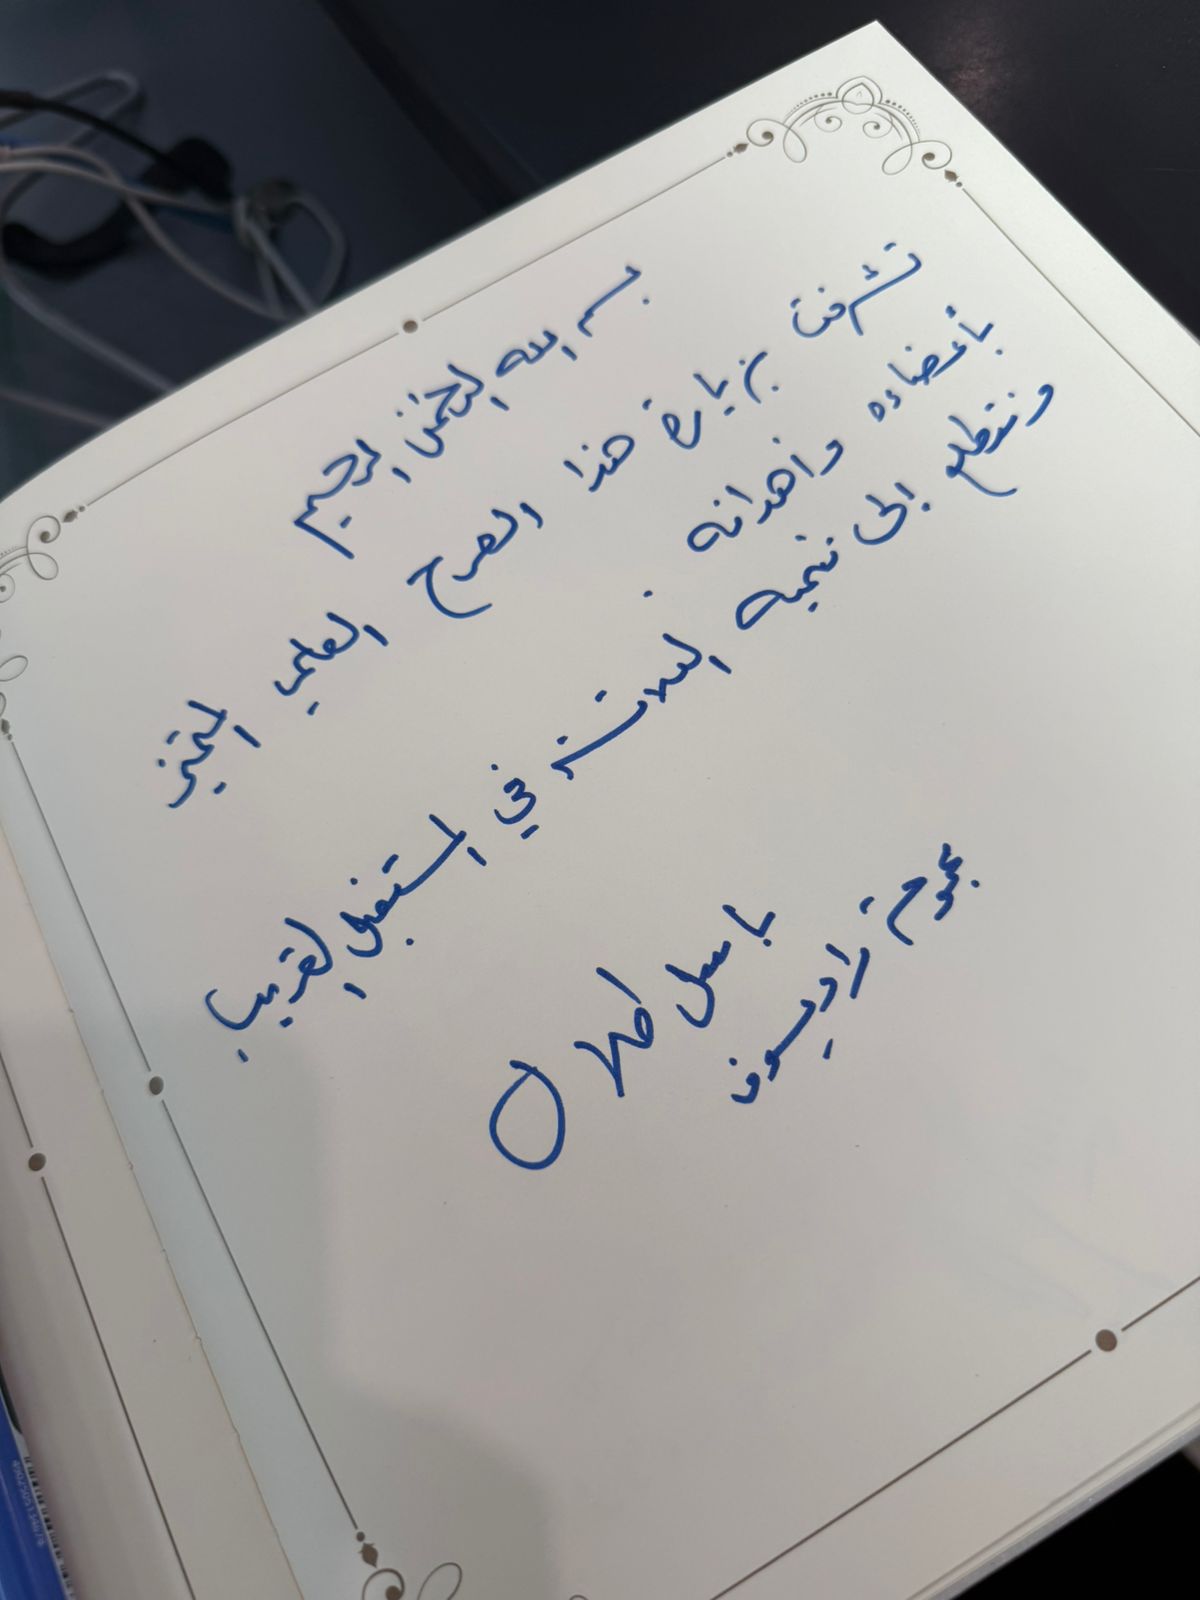 بسم الله الرحمن الرحيم
تشرفت بزيارة هذا الصرح العلمي المتميز
بأعضاءه وأهدافه .
ونتطلع إلى تنمية العلاقة في المستقبل القريب
باسل طلال
مجموعة راديسون